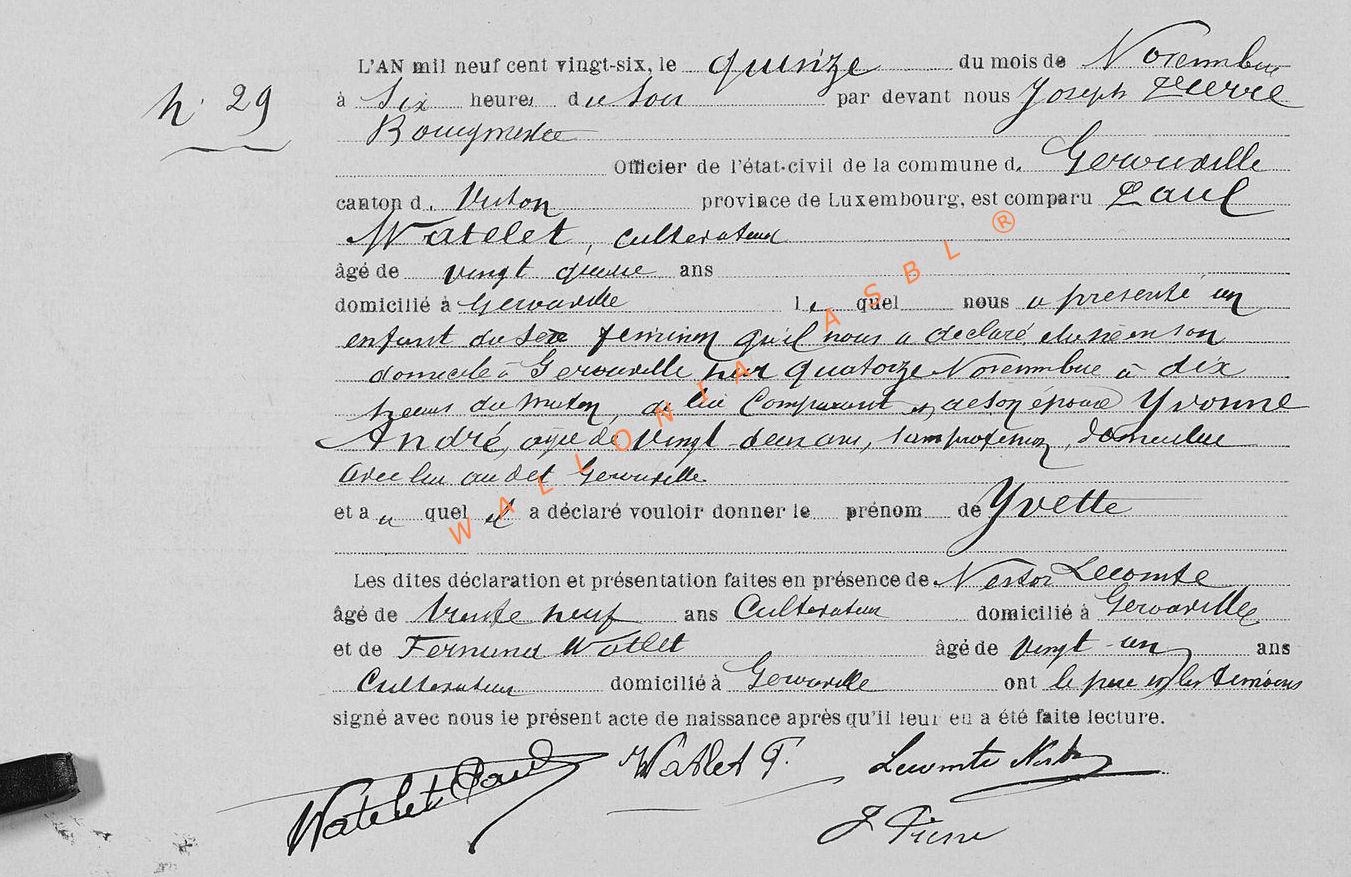 L'AN mil neuf cent vingt-six, le quinze du mois de Novembre
n° 29
à Six heures du soir par devant nous Joseph Pierre
Bourgmestre
Officier de l'état-civil de la commune d. Gerouville
canton d. Virton province de Luxembourg, est comparu Paul
Watelet, cultivateur
âgé de vingt ans
domicilié à Gerouville lequel nous a présenté un
enfant du sexe féminin qu'il nous a déclaré être né en son
domicile à Gerouville hier quatorze Novembre à dix
heures du matin, de lui Comparant et de son épouse Yvonne
André, agée de vingt deux ans, sans profession, domiciliée
avec lui au dit Gerouville
et auquel il a déclaré vouloir donner le prénom de Yvette
Les dites déclaration et présentation faites en présence de Nestor Lecomte
âgé de trente neuf ans Cultivateur domicilié à Gerouville
et de Fernand Watlet âgé de vingt-un ans
Cultivateur domicilié à Gerouville ont le père et les témoins
signé avec nous le présent acte de naissance après qu'il leur en a été faite lecture.
Watelet Paul Watlet F. Lecomte Nestor
J Pierre
WALLONIA ASBL ®